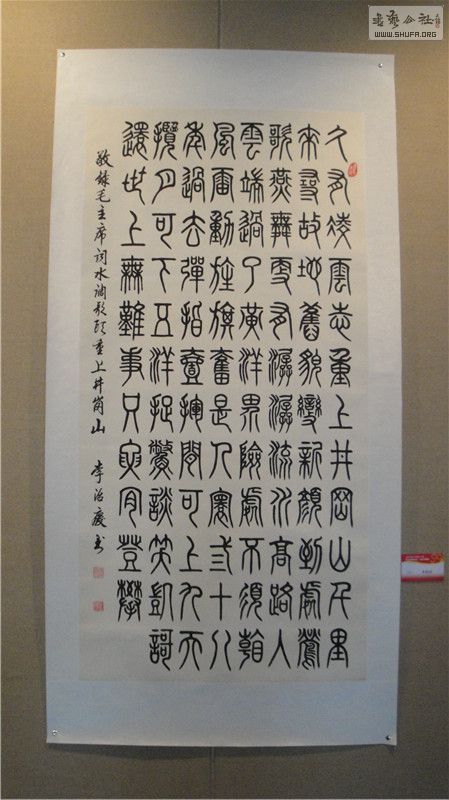 書藝公社
WWW.SHUFA.ORG
久有凌雲志重上井岡山千里
來尋故地舊貌變新顏到處鶯
歌燕舞更有潺潺流水高路入
雲端過了黃洋界險處不須看
風雷動旌旗奮是人寰弎十八
年過去彈指壹揮間可上九天
攬月可下五洋捉鱉談笑凱歌
還世上無難事只要肯登攀
敬錄毛主席词水調歌頭重上井崗山 李治慶書